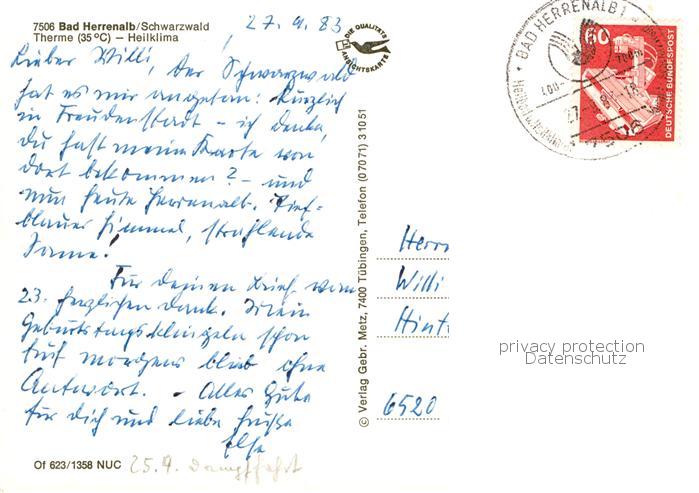 7506 Bad Herrenalb/Schwarzwald
Therme (35 °C) – Heilklima
27.9.83
DIE QUALITÄTS
ANSICHTSKARTE
Lieber Willi,
der Schwarzwald
hat es mir angetan: Kürzlich
in Freudenstadt – ich denke,
du hast meine Karte von
dort bekommen? – und
nun heute Herrenalb. Tief-
blauer Himmel, strahlende
Sonne.
Für deinen Brief vom
23. herzlichen Dank. Mein
Geburtstagsklingeln schon
früh morgens blieb ohne
Antwort. – Alles Gute
für dich und liebe Grüße
Else
Of 623/1358 NUC
25.9. Dampffahrt
© Verlag Gebr. Metz, 7400 Tübingen, Telefon (07071) 31051
BAD HERRENALB 1
7506
60
DEUTSCHE BUNDESPOST
Herrn
Willi
Hint
6520
privacy protection
Datenschutz